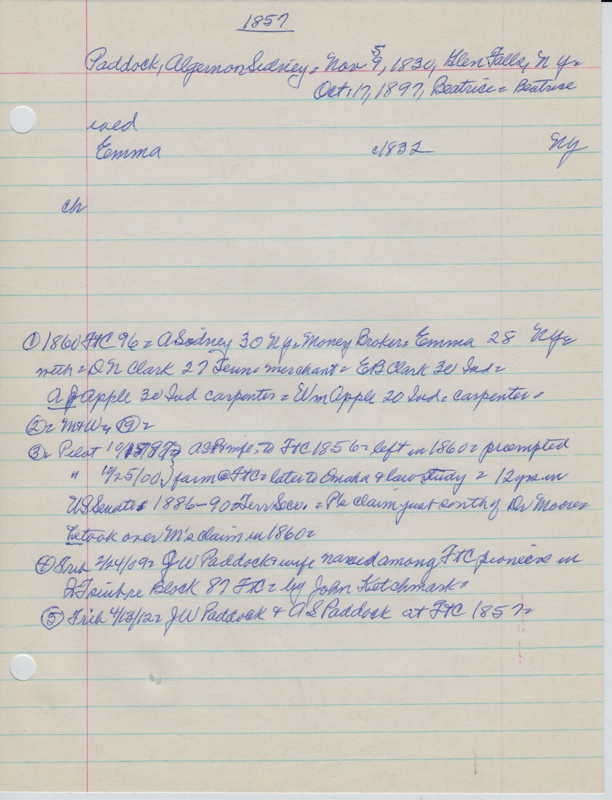 1857
Paddock, Algernon Sidney = Nov 9, 1830, Glen Falls, N Y =
5
Oct. 17, 1897, Beatrice = Beatrice
wed
Emma c1832 Ny
ch
① 1860 FtC 96 = A Sidney 30 Ny = Money Broker = Emma 28 Ny =
with = O N Clark 27 Tenn = merchant = E B Clark 30 Ind =
A J Apple 30 Ind carpenter = Wm Apple 20 Ind = carpenter =
② = M+W =
③ = Pilot = to FtC 1856 = left in 1860 = preempted
" 10/25/00 } farm @ FtC = later to Omaha & law study = 12 yrs in
US Senate 1886-90 Terr Secy. = P's claim just south of Dr Moore =
he took over M's claim in 1860 =
④ Trib 2/24/09 = J W Paddock & wife named among FtC pioneers in
Block 87 FtC = by John Ketchmark =
⑤ Trib 4/13/12 = J W Paddock & A S Paddock at FtC 1857 =